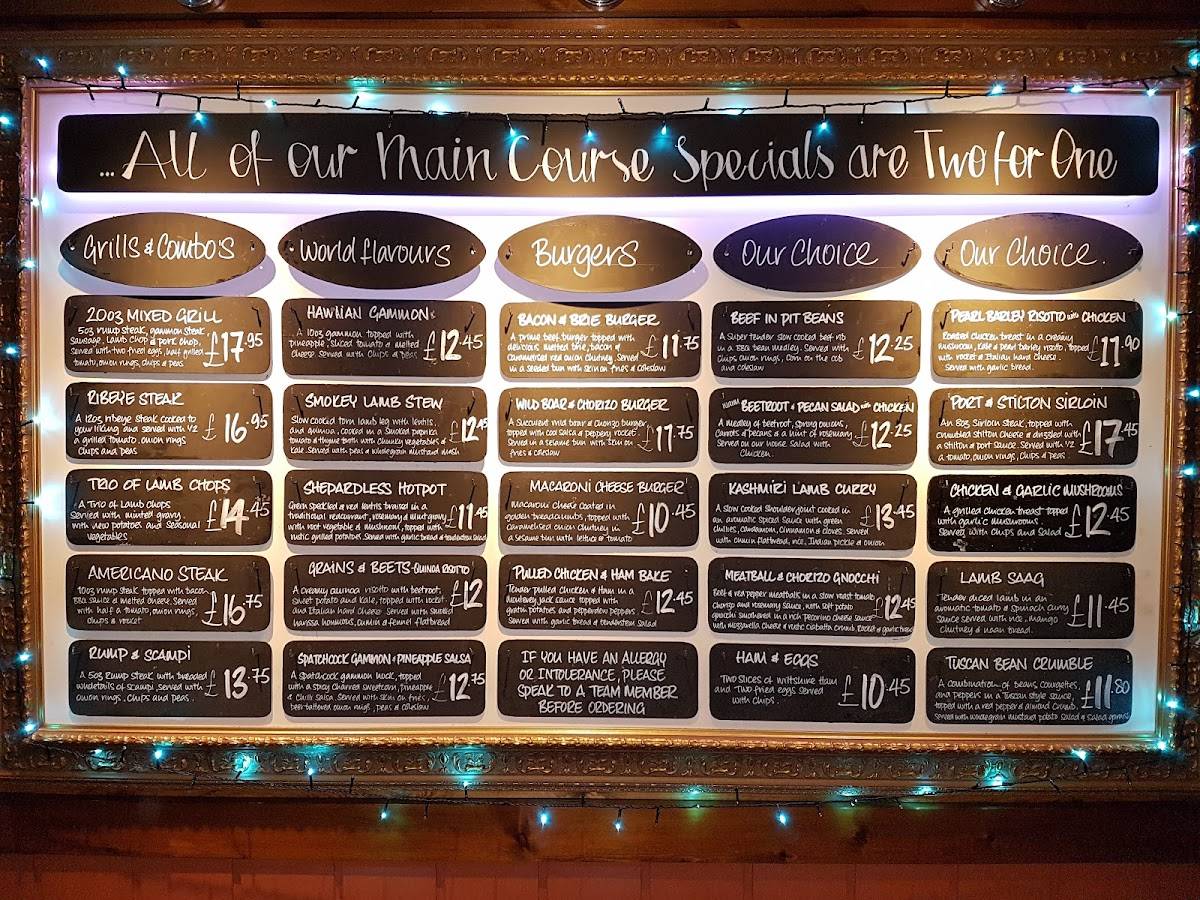 ...All of our Main Course Specials are Two for One
Grills & Combo's
20oz MIXED GRILL
5oz rump steak, gammon steak,
Sausage, lamb chop & pork chop,
served with two fried eggs, half grilled
tomato, onion rings, chips & peas
£17.95
RIBEYE STEAK
A 12oz ribeye steak cooked to
your liking and served with 1/2
a grilled tomato, onion rings
chips and peas
£16.95
TRIO OF LAMB CHOPS
A Trio of Lamb Chops
Served with minted gravy,
with new potatoes and Seasonal
vegetables
£14.45
AMERICANO STEAK
10oz rump steak topped with bacon,
BBQ sauce & melted cheese. Served
with half a tomato, onion rings,
chips & rocket
£16.75
RUMP & SCAMPI
A 5oz Rump steak, with breaded
wholetails of scampi, served with
onion rings, chips and peas.
£13.75
World flavours
HAWIIAN GAMMON
A 10oz gammon topped with
pineapple, sliced tomato & melted
cheese. Served with chips & peas
£12.45
SMOKEY LAMB STEW
Slow cooked torn lamb leg with lentils,
and quinoa, cooked in a smoked paprika
tomato & thyme broth with chunky vegetables &
kale. Served with peas & wholegrain mustard mash
£12.45
SHEPARDLESS HOTPOT
Green speckled & red lentils braised in a
traditional redcurrant, rosemary & mint gravy
with root vegetable & mushrooms, topped with
rustic grilled potatoes. Served with garlic bread & tenderstem salad
£11.45
GRAINS & BEETS-QUINOA RISOTTO
A creamy quinoa risotto with beetroot,
sweet potato and kale, topped with rocket
and Italian hard cheese. Served with smoked
harissa hommous, cumin & fennel flatbread
£12
SPATCHCOCK GAMMON & PINEAPPLE SALSA
A spatchcock gammon hock, topped
with a spicy charred sweetcorn, pineapple
& chilli salsa. Served with skin on fries,
beer-battered onion rings, peas & coleslaw
£12.75
Burgers
BACON & BRIE BURGER
A prime beef burger topped with
delicious melted brie, bacon &
caramelised red onion chutney. Served
in a seeded bun with skin on fries & coleslaw
£11.75
WILD BOAR & CHORIZO BURGER
A Succulent wild boar & chorizo burger,
topped with cool salsa & peppery rocket.
Served in a sesame bun with skin on
fries & coleslaw
£11.75
MACARONI CHEESE BURGER
Macaroni cheese coated in
golden breadcrumbs, topped with
caramelised onion chutney in
a sesame bun with lettuce & tomato
£10.45
PULLED CHICKEN & HAM BAKE
Tender pulled chicken & Ham in a
Monterey jack sauce topped with
gratin potatoes and pepperdew peppers.
Served with garlic bread & tenderstem salad
£12.45
IF YOU HAVE AN ALLERGY
OR INTOLERANCE, PLEASE
SPEAK TO A TEAM MEMBER
BEFORE ORDERING
Our Choice
BEEF IN PIT BEANS
A Super tender slow cooked beef rib
in a BBQ bean medley. Served with
Chips onion rings, corn on the cob
and coleslaw
£12.25
BEETROOT & PECAN SALAD with CHICKEN
A medley of beetroot, spring onions,
Carrots & pecans & a hint of rosemary
Served on our house salad with
Chicken.
£12.25
KASHMIRI LAMB CURRY
A slow cooked shoulder joint cooked in
an aromatic spiced sauce with green
chillies, cardamom, cinnamon & cloves. Served
with cumin flatbread, rice, Indian pickle & onion
£13.45
MEATBALL & CHORIZO GNOCCHI
Beef & red pepper meatballs in a slow roast tomato
chorizo and rosemary sauce, with soft potato
gnocchi smothered in a rich pecorino cheese sauce
with mozzarella cheese & rustic ciabatta crumb. Rocket & garlic bread
£12.45
HAM & EGGS
TWO SLICES of Wiltshire Ham
and Two fried eggs Served
with chips.
£10.45
Our Choice.
PEARL BARLEY RISOTTO with CHICKEN
Roasted chicken breast in a creamy
mushroom, kale & pearl barley risotto, topped
with rocket & Italian hard cheese.
Served with garlic bread.
£11.90
PORT & STILTON SIRLOIN
An 8oz Sirloin steak, topped with
crumbled Stilton cheese & drizzled with
a stilton & port sauce. Served with 1/2
a tomato, onion rings, chips & peas.
£17.45
CHICKEN & GARLIC MUSHROOMS
A grilled chicken breast topped
with garlic mushrooms.
Served with chips and salad
£12.45
LAMB SAAG
Tender diced lamb in an
aromatic tomato & spinach curry
sauce served with rice, mango
chutney & naan bread.
£11.45
TUSCAN BEAN CRUMBLE
A combination of beans, courgettes,
and peppers in a Tuscan style sauce,
topped with a red pepper & almond crumb.
Served with wholegrain mustard potato salad & salad garnish
£11.80